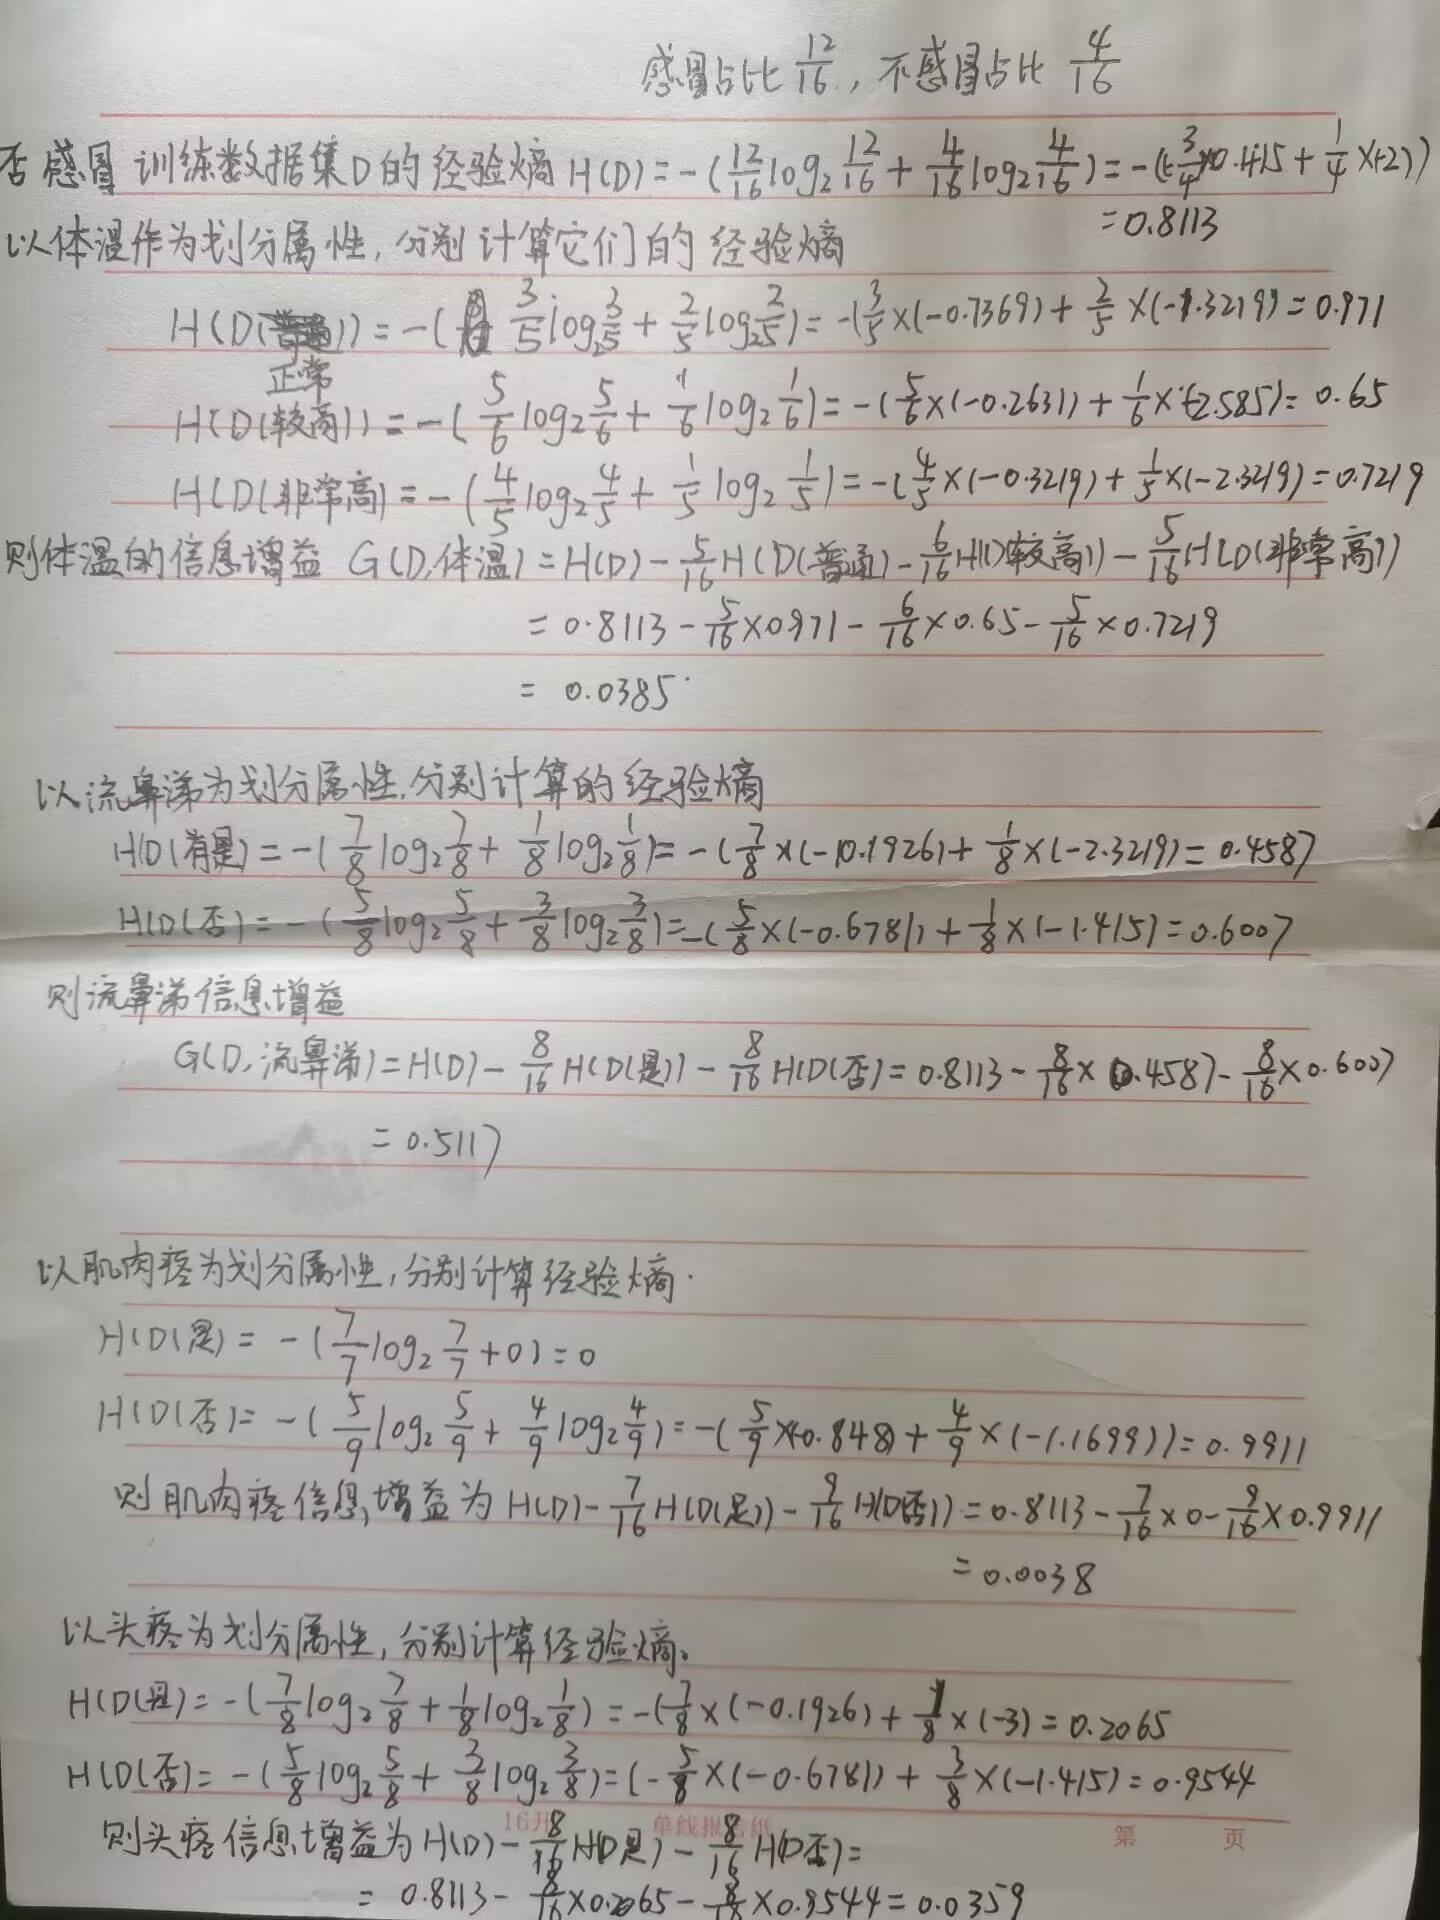 感冒占比 12/16, 不感冒占比 4/16
否感冒 训练数据集D的经验熵 H(D) = -(12/16 log₂ 12/16 + 4/16 log₂ 4/16) = -(-3/4×0.415 + 1/4×(-2))
= 0.8113
以体温作为划分属性, 分别计算它们的经验熵
H(D()) = -( 3/5 log₂ 3/5 + 2/5 log₂ 2/5) = -(3/5×(-0.7369) + 2/5×(-1.3219) = 0.971
正常
H(D(较高)) = -(5/6 log₂ 5/6 + 1/6 log₂ 1/6) = -(5/6×(-0.2631) + 1/6×(-2.585) = 0.65
H(D(非常高) = -(4/5 log₂ 4/5 + 1/5 log₂ 1/5) = -(4/5×(-0.3219) + 1/5×(-2.3219) = 0.7219
则体温的信息增益 G(D,体温) = H(D) - 5/16 H(D(普通) - 6/16 H(D(较高)) - 5/16 H(D(非常高))
= 0.8113 - 5/16×0.971 - 6/16×0.65 - 5/16×0.7219
= 0.0385
以流鼻涕为划分属性,分别计算的经验熵
H(D(是) = -(7/8 log₂ 7/8 + 1/8 log₂ 1/8) = -(7/8×(-0.1926) + 1/8×(-2.3219) = 0.4587
H(D(否) = -(5/8 log₂ 5/8 + 3/8 log₂ 3/8) = -(5/8×(-0.6781) + 1/8×(-1.415) = 0.6007
则流鼻涕信息增益
G(D,流鼻涕) = H(D) - 8/16 H(D(是)) - 8/16 H(D(否) = 0.8113 - 8/16×0.4587 - 8/16×0.6007
= 0.5117
以肌肉疼为划分属性,分别计算经验熵.
H(D(是) = -(7/7 log₂ 7/7 + 0) = 0
H(D(否) = -(5/9 log₂ 5/9 + 4/9 log₂ 4/9) = -(5/9×(-0.848) + 4/9×(-1.1699)) = 0.9911
则肌肉疼信息增益为 H(D) - 7/16 H(D(是)) - 9/16 H(D(否)) = 0.8113 - 7/16×0 - 9/16×0.9911
= 0.0038
以头疼为划分属性,分别计算经验熵。
H(D(是) = -(7/8 log₂ 7/8 + 1/8 log₂ 1/8) = -(7/8×(-0.1926) + 1/8×(-3) = 0.2065
H(D(否) = -(5/8 log₂ 5/8 + 3/8 log₂ 3/8) = (-5/8×(-0.6781) + 3/8×(-1.415) = 0.9544
16开 单线报告纸 第 页
则头疼信息增益为 H(D) - 8/16 H(D是) - 8/16 H(D否) =
= 0.8113 - 8/16×0.2065 - 8/16×0.9544 = 0.0359